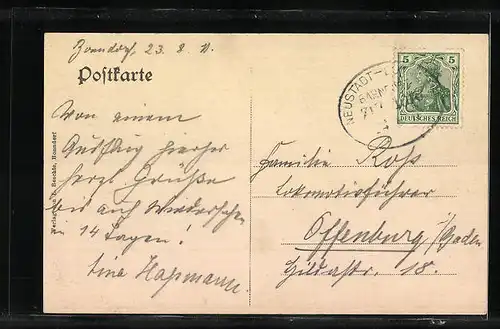 Bonndorf, 23. 8. 11.
Postkarte
Von einem
Ausflug hierher
herzl. Grüße
bis auf Wiedersehen
in 14 Tagen!
Tina Hassmann.
Verlag von Beschle, Bonndorf
NEUSTADT-
BAHNPO
ZUG
5 5
DEUTSCHES REICH
Familie Ross
Lokomotivführer
Offenburg i/Baden
Hildastr. 18.